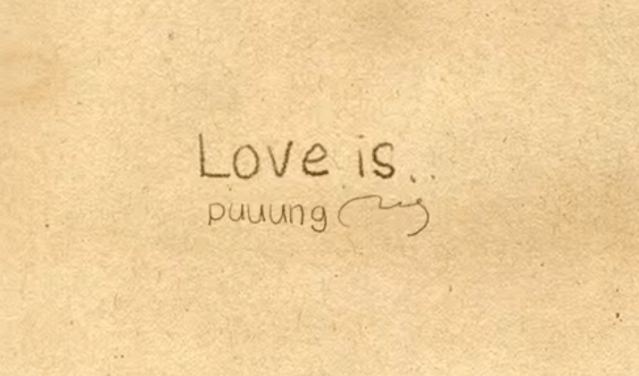 Love is..
puuung